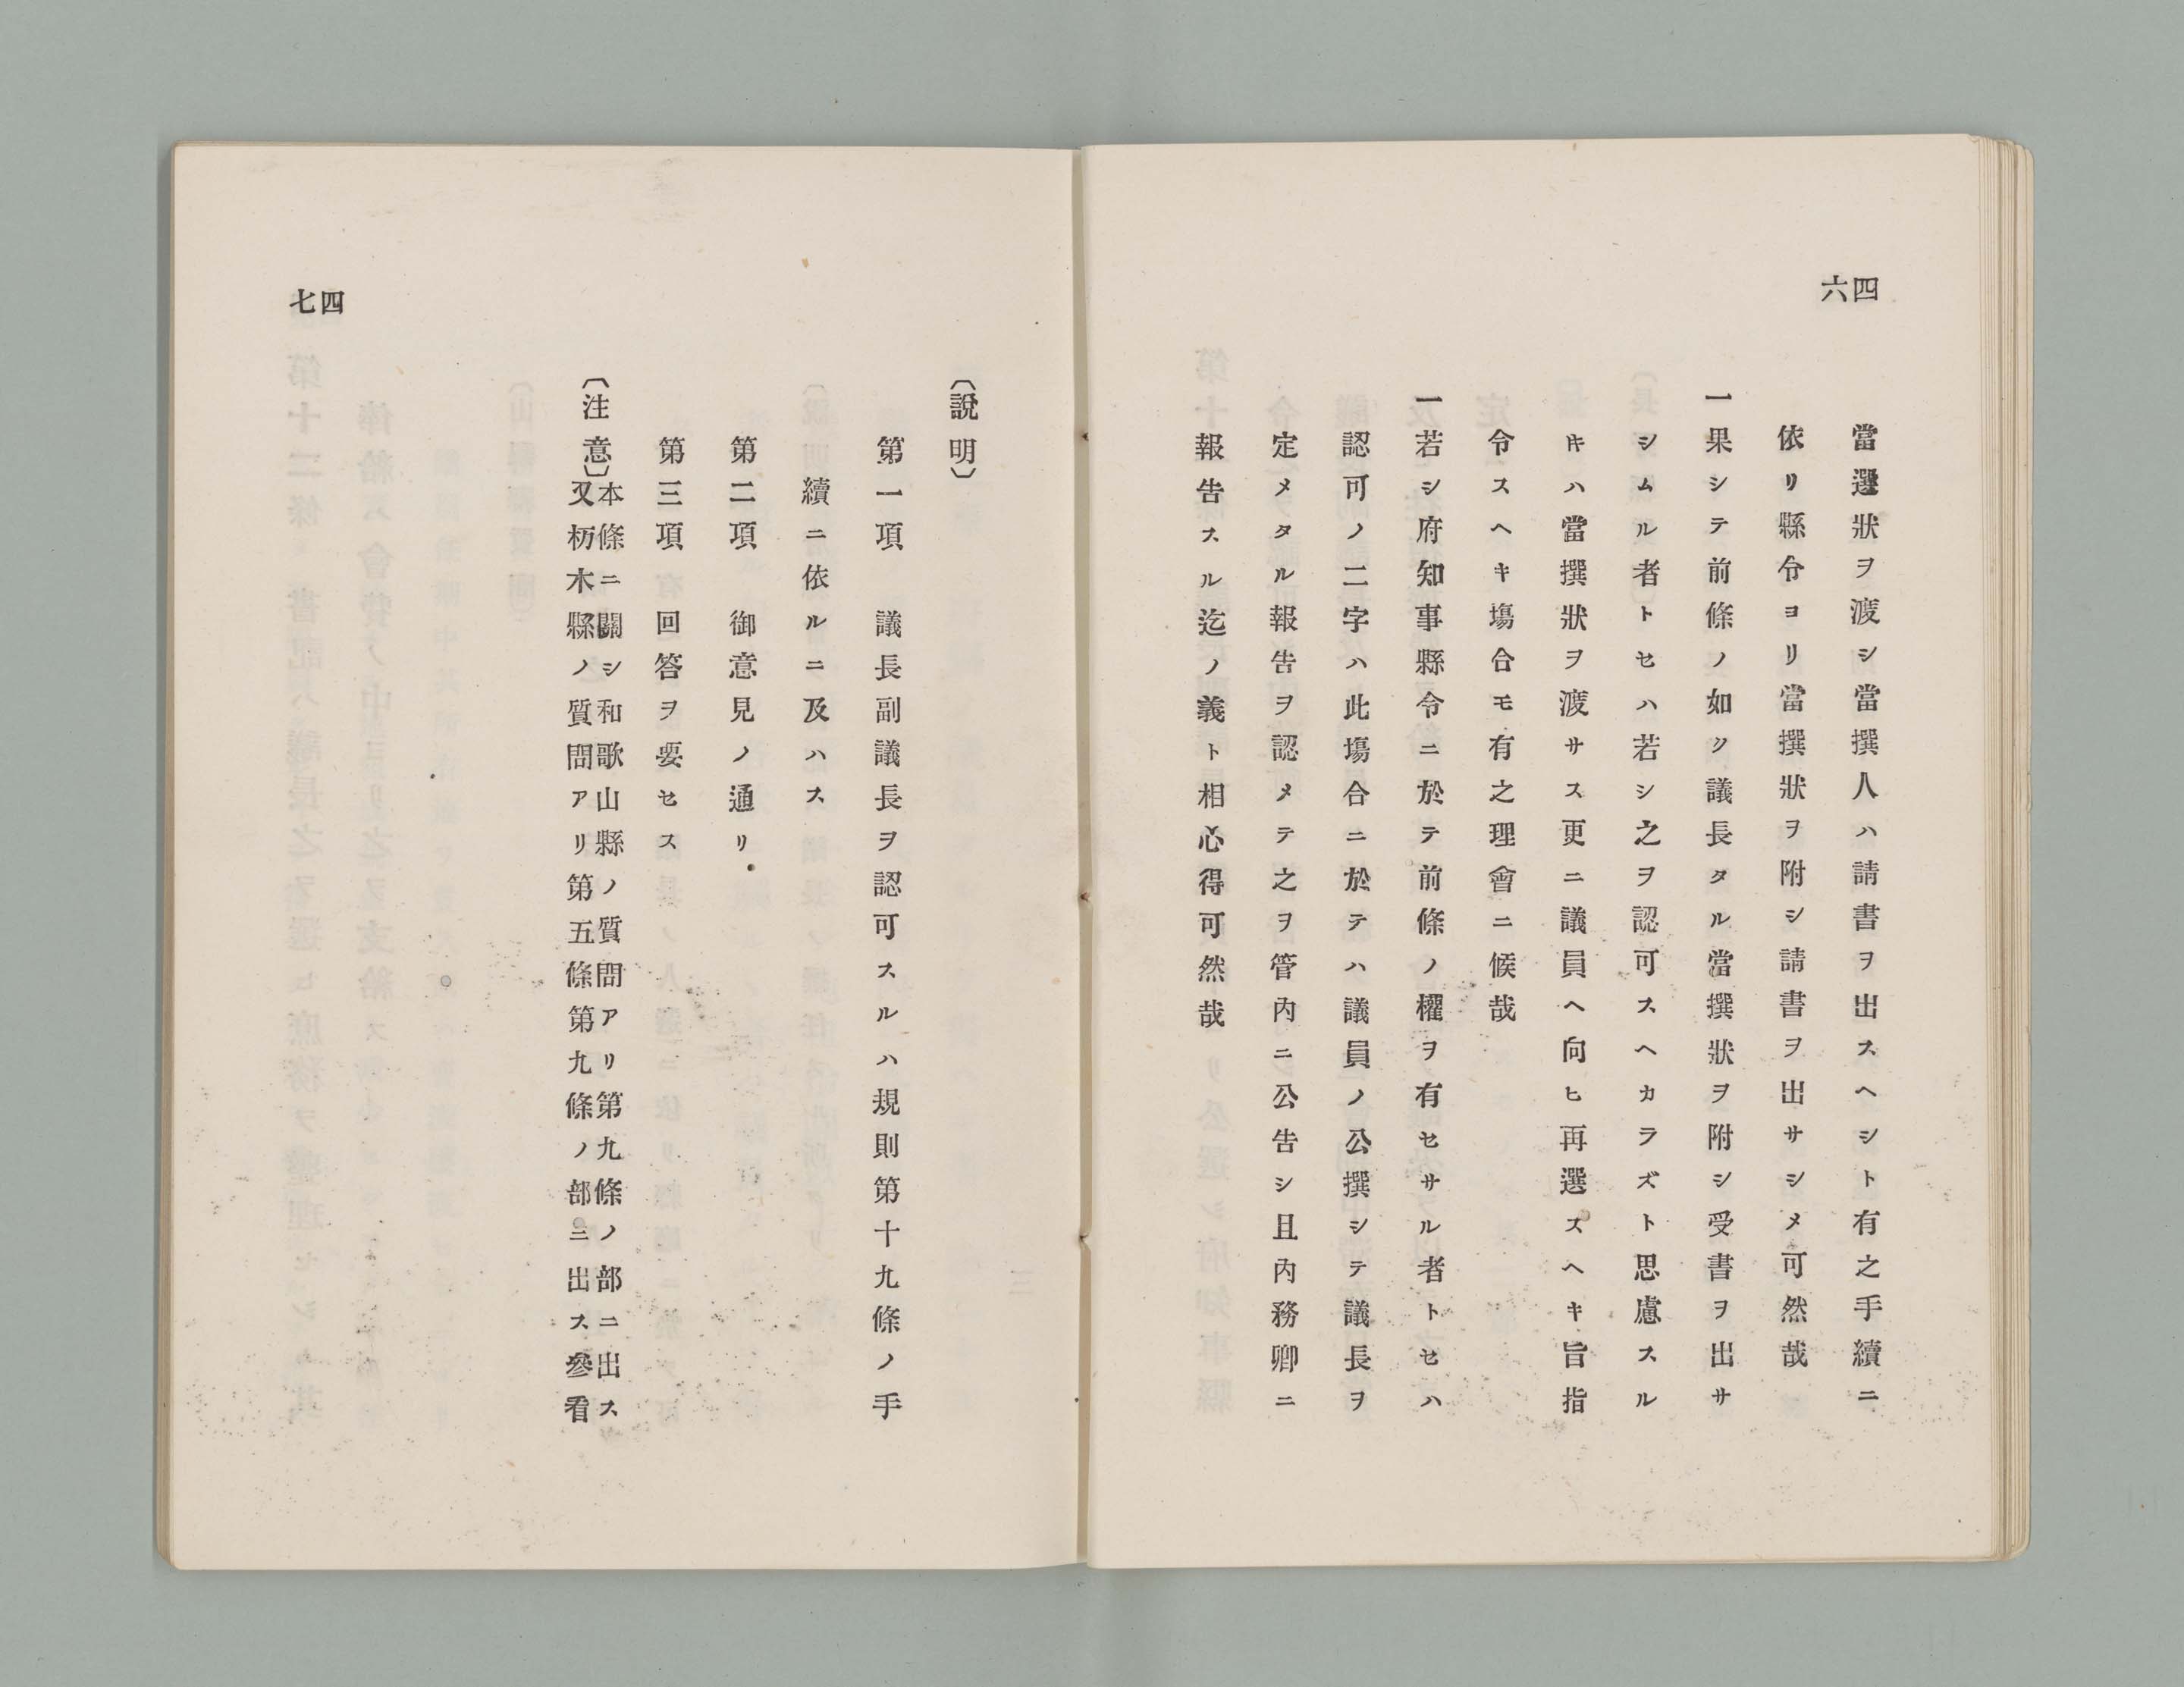 四六
當選狀ヲ渡シ當撰人ハ請書ヲ出スヘシト有之手續ニ
依リ縣令ヨリ當撰狀ヲ附シ請書ヲ出サシメ可然哉
一果シテ前條ノ如ク議長タル當撰狀ヲ附シ受書ヲ出サ
シムル者トセハ若シ之ヲ認可スヘカラズト思慮スル
キハ當撰狀ヲ渡サス更ニ議員ヘ向ヒ再選スヘキ旨指
令スヘキ塲合モ有之理會ニ候哉
一若シ府知事縣令ニ於テ前條ノ權ヲ有セサル者トセハ
認可ノ二字ハ此塲合ニ於テハ議員ノ公撰シテ議長ヲ
定メタル報告ヲ認メテ之ヲ管內ニ公告シ且內務卿ニ
報告スル迄ノ義ト相心得可然哉
四七
〔說明〕
第一項 議長副議長ヲ認可スルハ規則第十九條ノ手
續ニ依ルニ及ハス
第二項 御意見ノ通リ
第三項 回答ヲ要セス
〔注意〕本條ニ關シ和歌山縣ノ質問アリ第九條ノ部ニ出ス
又栃木縣ノ質問アリ第五條第九條ノ部ニ出ス參看